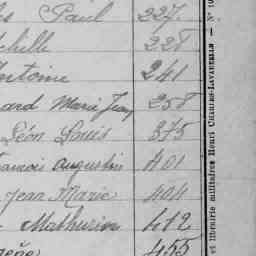 Paul 227.
chille 228
Antoine 241
ard Marie Jean 258
Léon Louis 375
rançois Augustin 401
Jean Marie 404
Mathurin 412
gène 455
et librairie militaires Henri CHARLES-LAVAUZELLE — N°